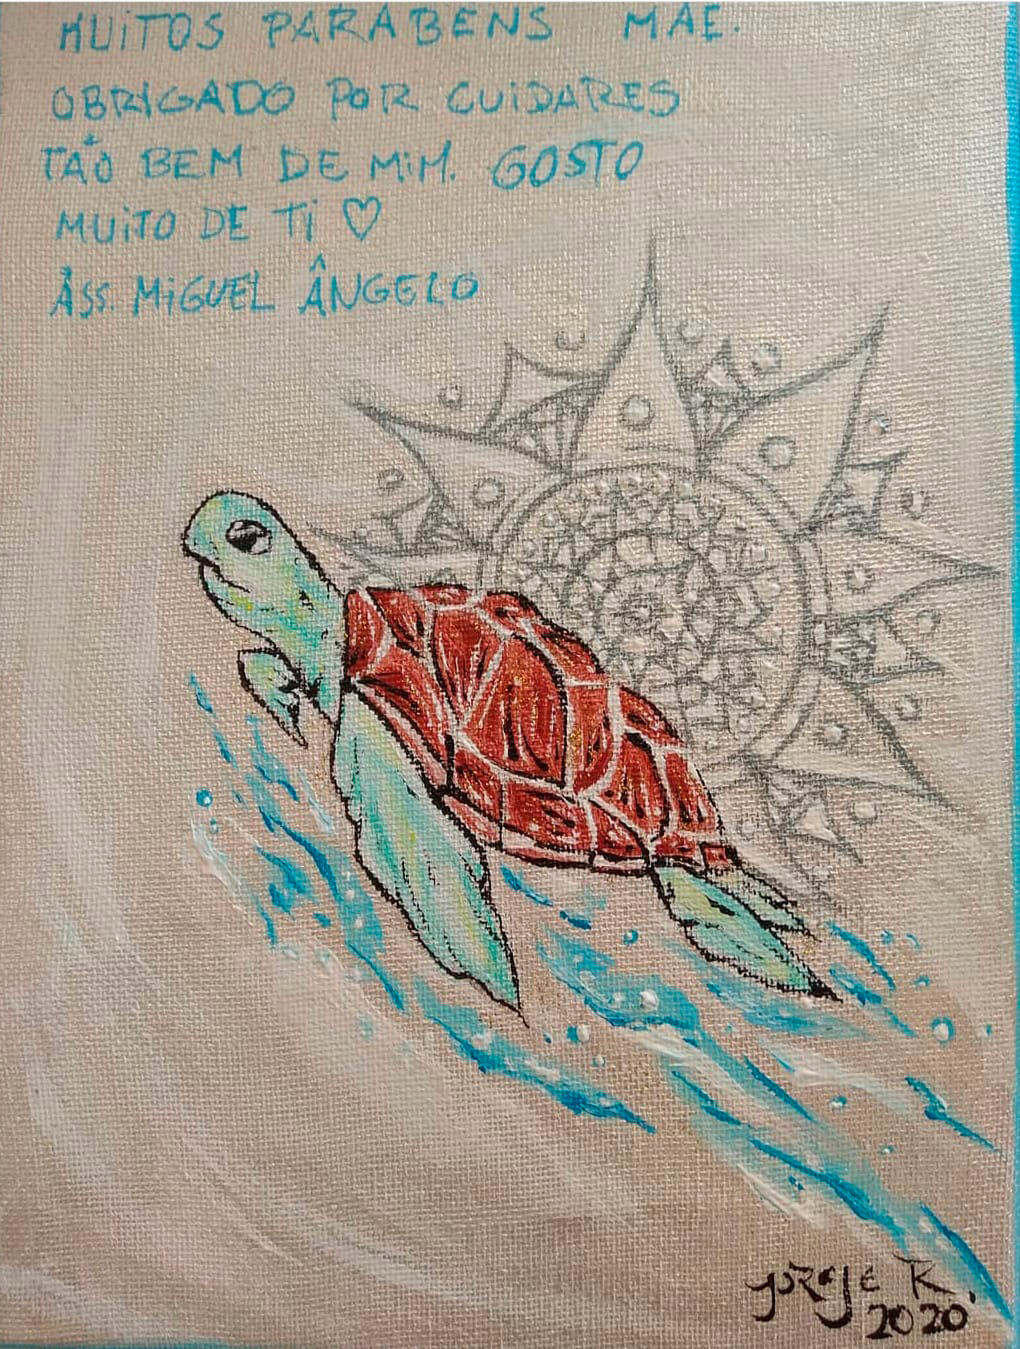 MUITOS PARABENS MAE.
OBRIGADO POR CUIDARES
TÃO BEM DE MiM. GOSTO
MUiTO DE Ti ♡
ASS. MiGUEL ÂNGELO
JORGE R.
2020